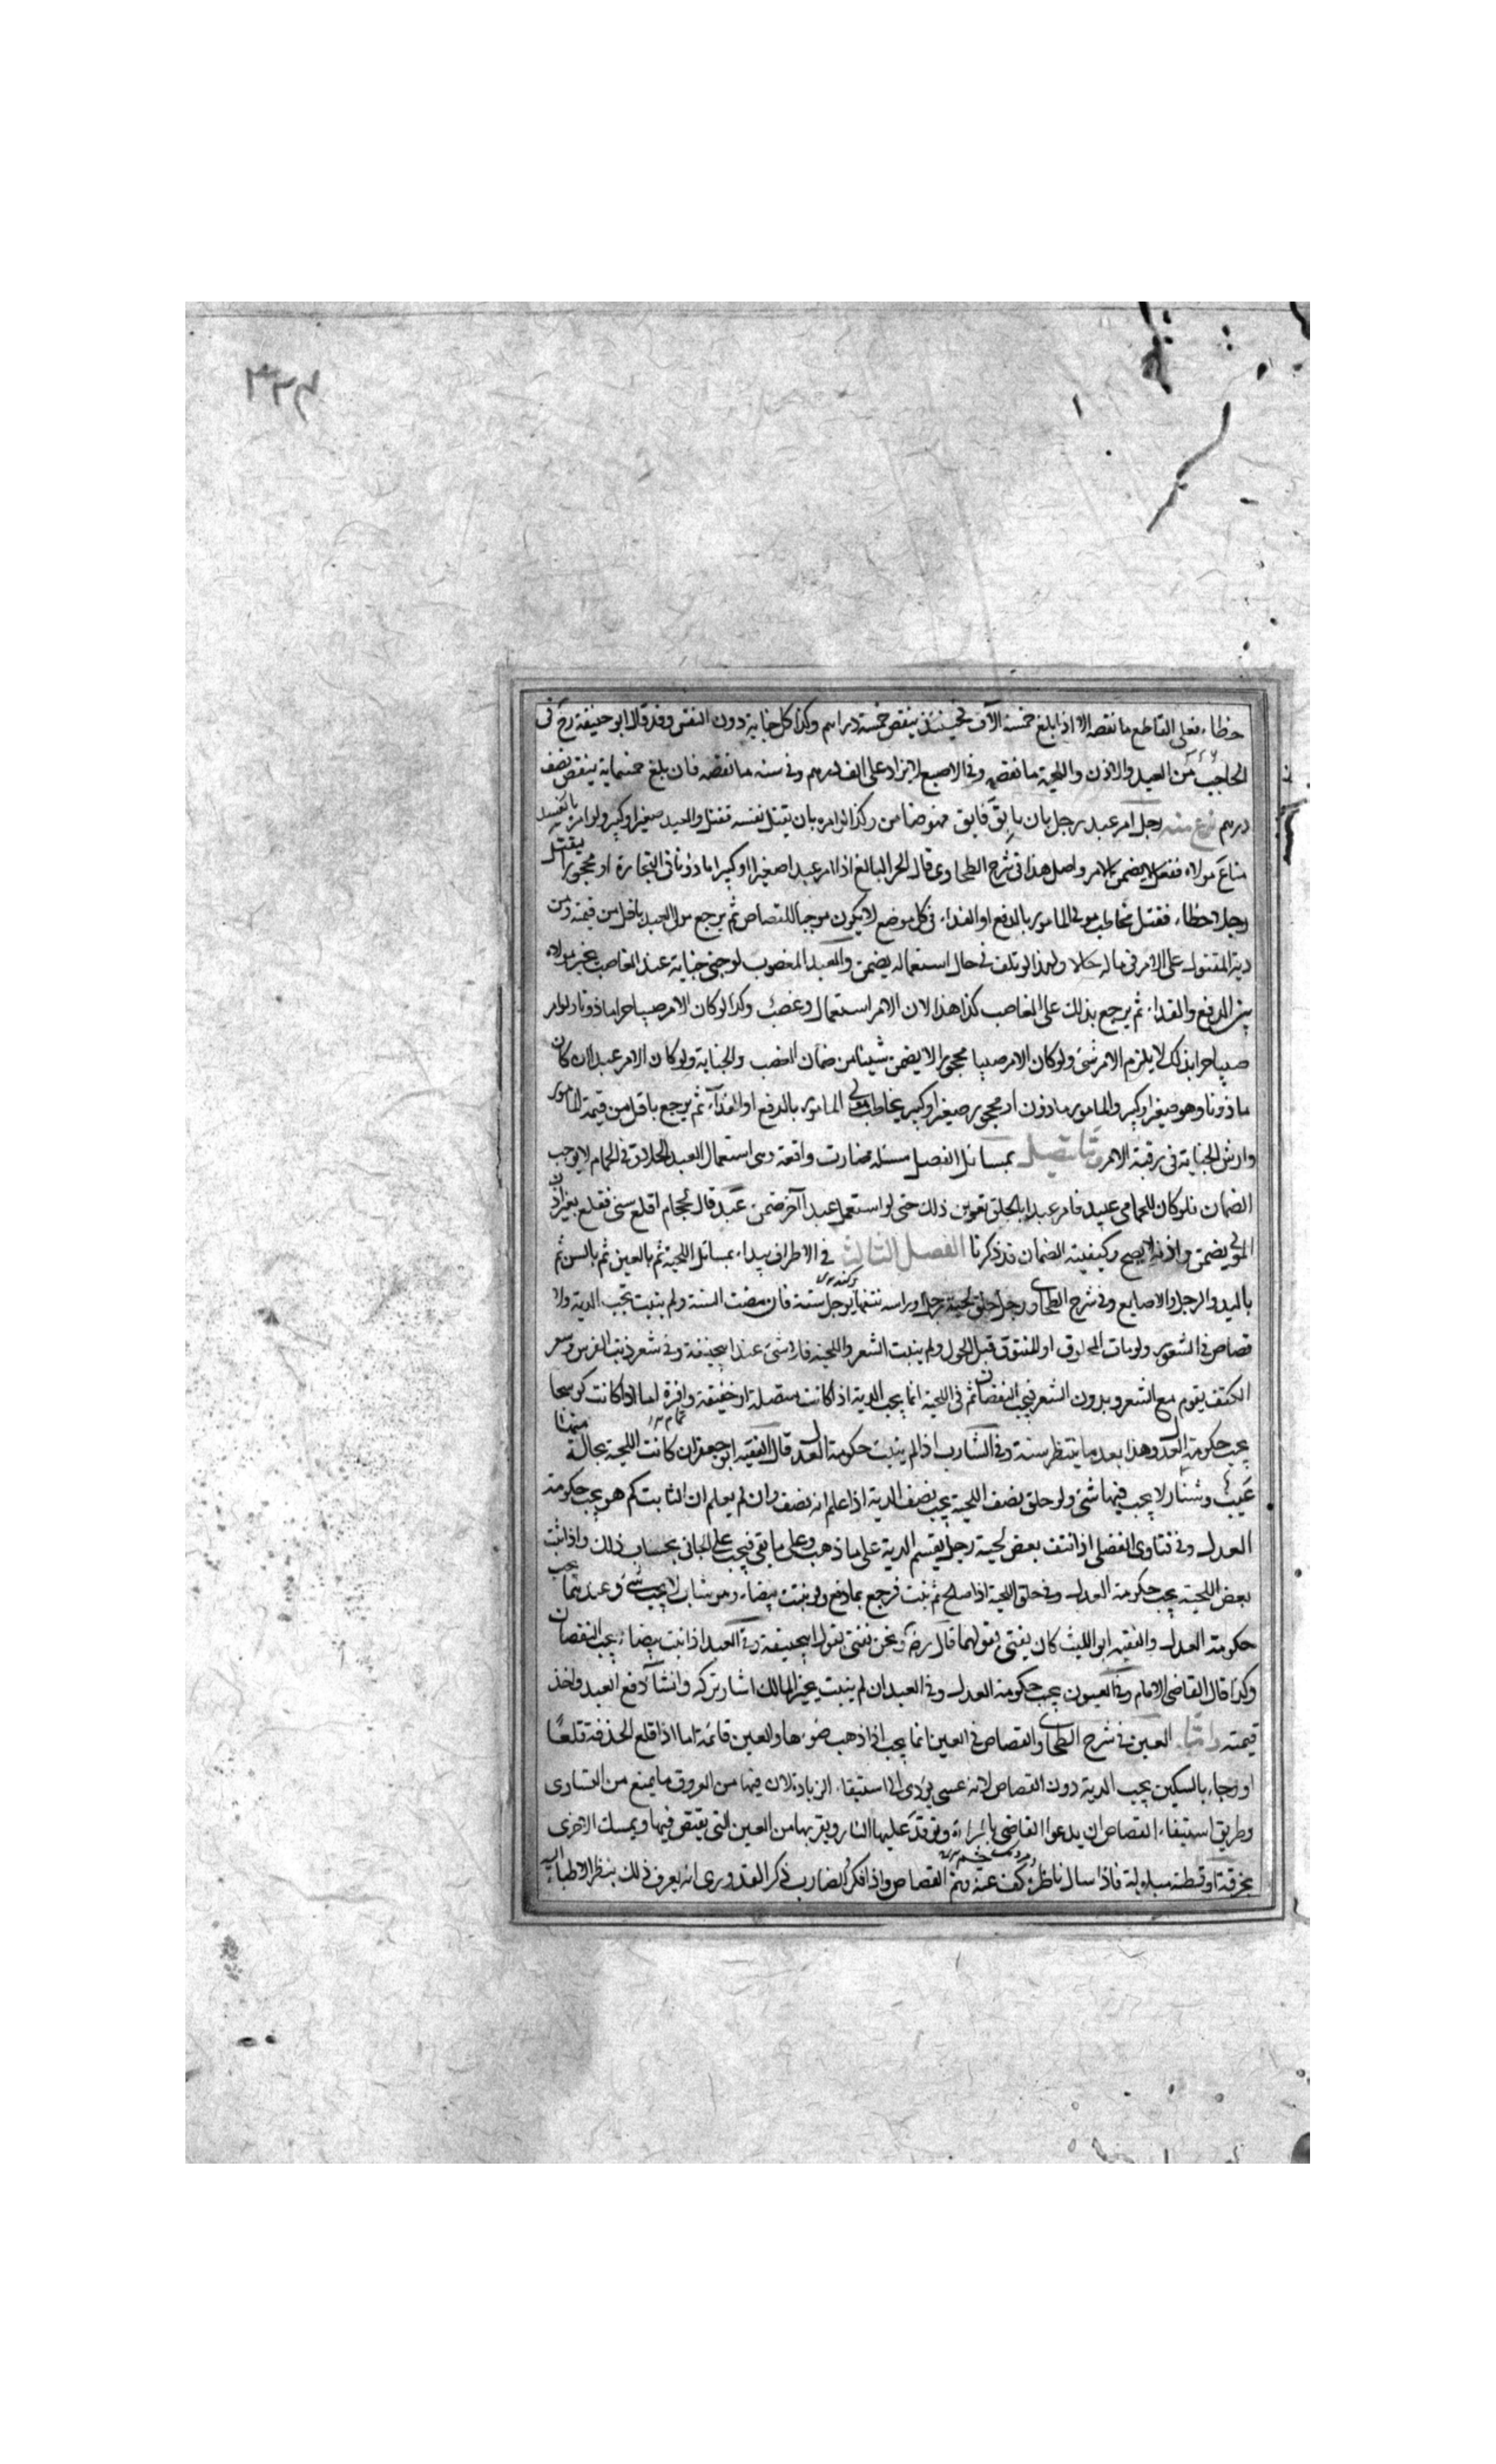 خطاء فعلى القاطع ما نقصه الا اذا بلغ خمسة الآف فحينئذ ينقص خمسة دراهم وكذا كل جناية دون النفس وقد قال ابو حنيفة رح فى
الحاجب من العبد والاذن واللحية ما نقصه وفى الاصبع لا يزاد على الف درهم وفى سنه ما نقصه فان بلغ خمسماية ينقص نصف
درهم رجل امر عبد رجل بان يابق فابق فهو ضامن وكذا لو امره بان يقتل نفسه فقتل والعبد صغير او كبير ولو امره
متاع مولاه ففعل لا يضمن الامر واصل هذا فى شرح الطحاوى قال الحر البالغ اذا امر عبدا صغيرا او كبيرا ماذونا فى التجارة او محجورا يقتل
رجلا خطاء فقتل يخاطب مولى المامور بالدفع او الفداء فى كل موضع لا يكون موجبا للقصاص ثم يرجع مولى العبد باقل من قيمته ومن
دية المقتول على الامر فى ماله ولهذا لو تلف فى حال استعماله يضمن والعبد المغصوب لو جنى جناية عند الغاصب يخير مولاه
بين الدفع والفداء ثم يرجع بذلك على الغاصب كذا هذا لان الامر استعمال وغصب وكذا لو كان الامر صبيا حرا ماذونا ولو امر
صبيا حرا بذلك لا يلزم الامر شئ ولو كان الامر صبيا محجورا لا يضمن شيئا من ضمان الغصب والجناية ولو كان الامر عبدا ان كان
ماذونا وهو صغير او كبير والمامور ماذون او محجور صغير او كبير يخاطب مولى المامور بالدفع او الفداء ثم يرجع باقل من قيمة المامور
وارش الجناية فى رقبة الامر بمسائل الفصل مسئلة صارت واقعة وهى استعمال العبد الحلاق فى الحمام لا يوجب
الضمان فلو كان للحمامى عبيد فامر عبدا بالحلق ذلك حتى لو استعمل عبدا آخر ضمن عبد قال لحجام اقلع سنى فقلع بغير اذن
المولى يضمن واذنه لا يصح وكيفية الضمان قد ذكرنا الفصل الثالث فى الاطراف يبداء بمسائل اللحية ثم بالعين ثم بالسن ثم
باليد والرجل والاصابع وفى شرح الطحاوى رجل حلق لحية رجل او راسه او نتفها يوجل سنة فان مضت السنة ولم ينبت تجب الدية ولا
قصاص فى الشعور ولو مات المحلوق او المنتوف قبل الحول ولم ينبت الشعر واللحية فلا شئ عند ابى حنيفة وفى شعر ذنب الفرس وشعر
الكتف يقوم مع الشعر وبدون الشعر فيجب النقصان ثم فى اللحية انما يجب الدية اذا كانت متصلة او خفيفة وافرة اما اذا كانت كوسجا
يجب حكومة العدل وهذا بعد ما ينتظر سنة وفى الشارب اذا لم ينبت حكومة العدل قال الفقيه ابو جعفر ان كانت اللحية بحالة
عيب وشنار لا يجب فيها شئ ولو حلق نصف اللحية يجب نصف الدية اذا علم انه نصف وان لم يعلم ان الثابت كم هو يجب حكومة
العدل وفى فتاوى الفضلى اذا نتف بعض لحية رجل يقسم الدية على ما ذهب وعلى ما بقى فيجب على الجانى بحساب ذلك واذا نبت
بعض اللحية يجب حكومة العدل وفى حلق اللحية اذا صالح ثم نبت فرجع بما دفع ولو نبتت بيضاء وهو شاب لا يجب شئ وعندهما يجب
حكومة العدل والفقيه ابو الليث كان يفتى بقولهما قال رضه ونحن نفتى بقول ابى حنيفة وفى العبد اذا نبت بيضاء يجب النقصان
وكذا قال القاضى الامام وفى العيون يجب حكومة العدل وفى العبد ان لم ينبت يخير المالك ان شاء تركه وان شاء دفع العبد واخذ
قيمته العين فى شرح الطحاوى والقصاص فى العين انما يجب اذا ذهب ضوءها والعين قائمة اما اذا قلع الحدقة قلعا
او وجاء بالسكين يجب الدية دون القصاص لانه عسى يؤدى الى استيفاء الزيادة لان فيها من العروق ما يمنع من التساوى
وطريق استيفاء القصاص ان يدعوا القاضى بالمرآة وتوقد عليها النار ويقربها من العين التى يقتص فيها ويمسك الاخرى
بخرقة او قطنة مبلولة فاذا سال ناظره كف عنه وتم القصاص واذا انكر الضارب ذكر القدورى انه يعرف ذلك بنظر الاطباء